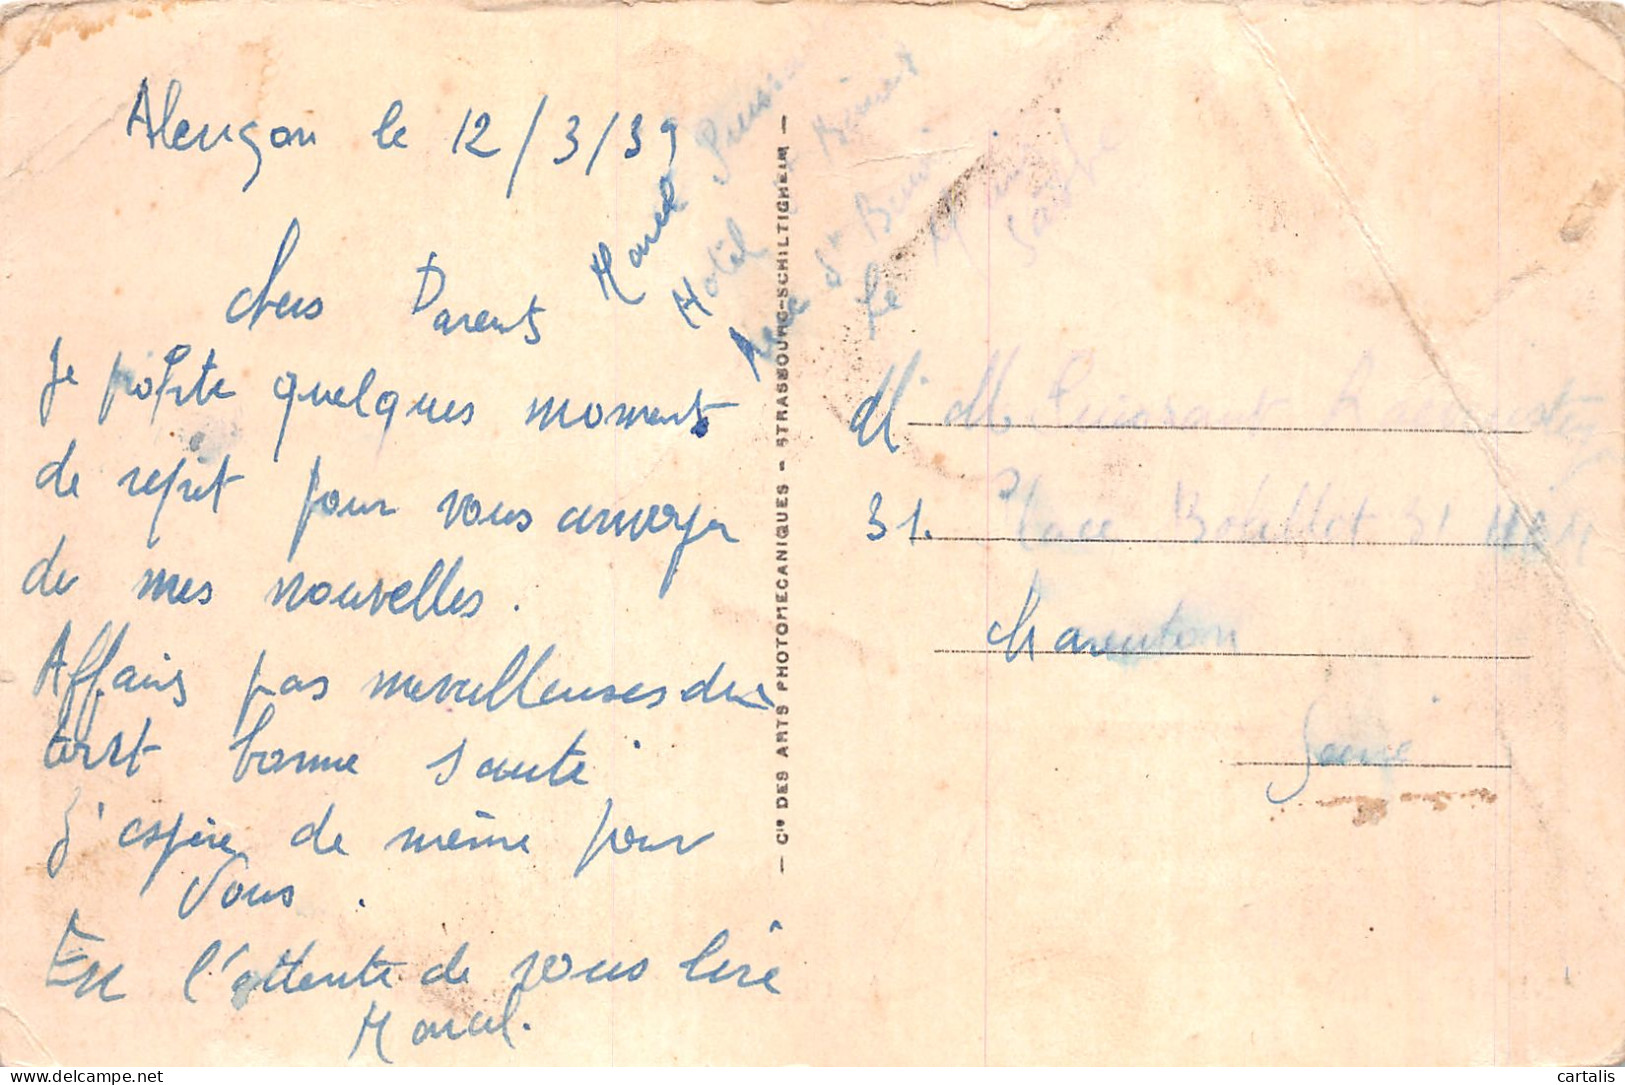 Alençon le 12/3/39
Chers Parents
Je profite quelques moments
de répit pour vous envoyer
de mes nouvelles.
Affaires pas merveilleuses du
tout bonne santé
J'espère de même pour
Vous.
En l'attente de vous lire
Marcel.
Marcel
Hotel
Le Mans
Sarthe
— Cie DES ARTS PHOTOMECANIQUES - STRASBOURG-SCHILTIGHEIM —
M. M.
31. Place 31
Charenton
Seine
cartalis